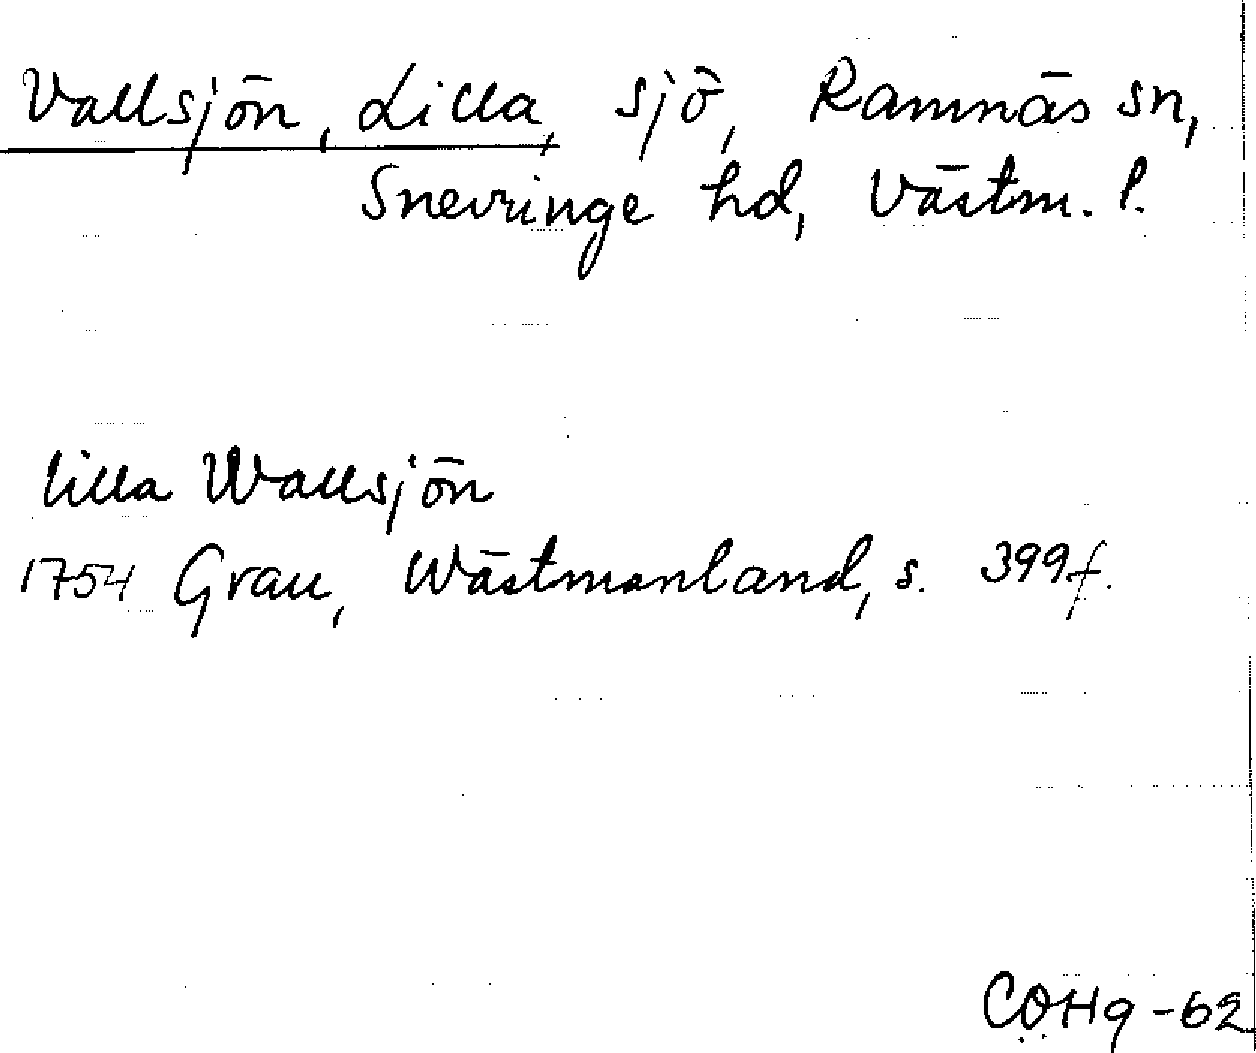 Vallsjön, Lilla, sjö, Ramnäs sn,
Snevringe hd, Västm. l.
lilla Wallsjön
1754 Grau, Wästmanland, s. 399 f.
COHg -62